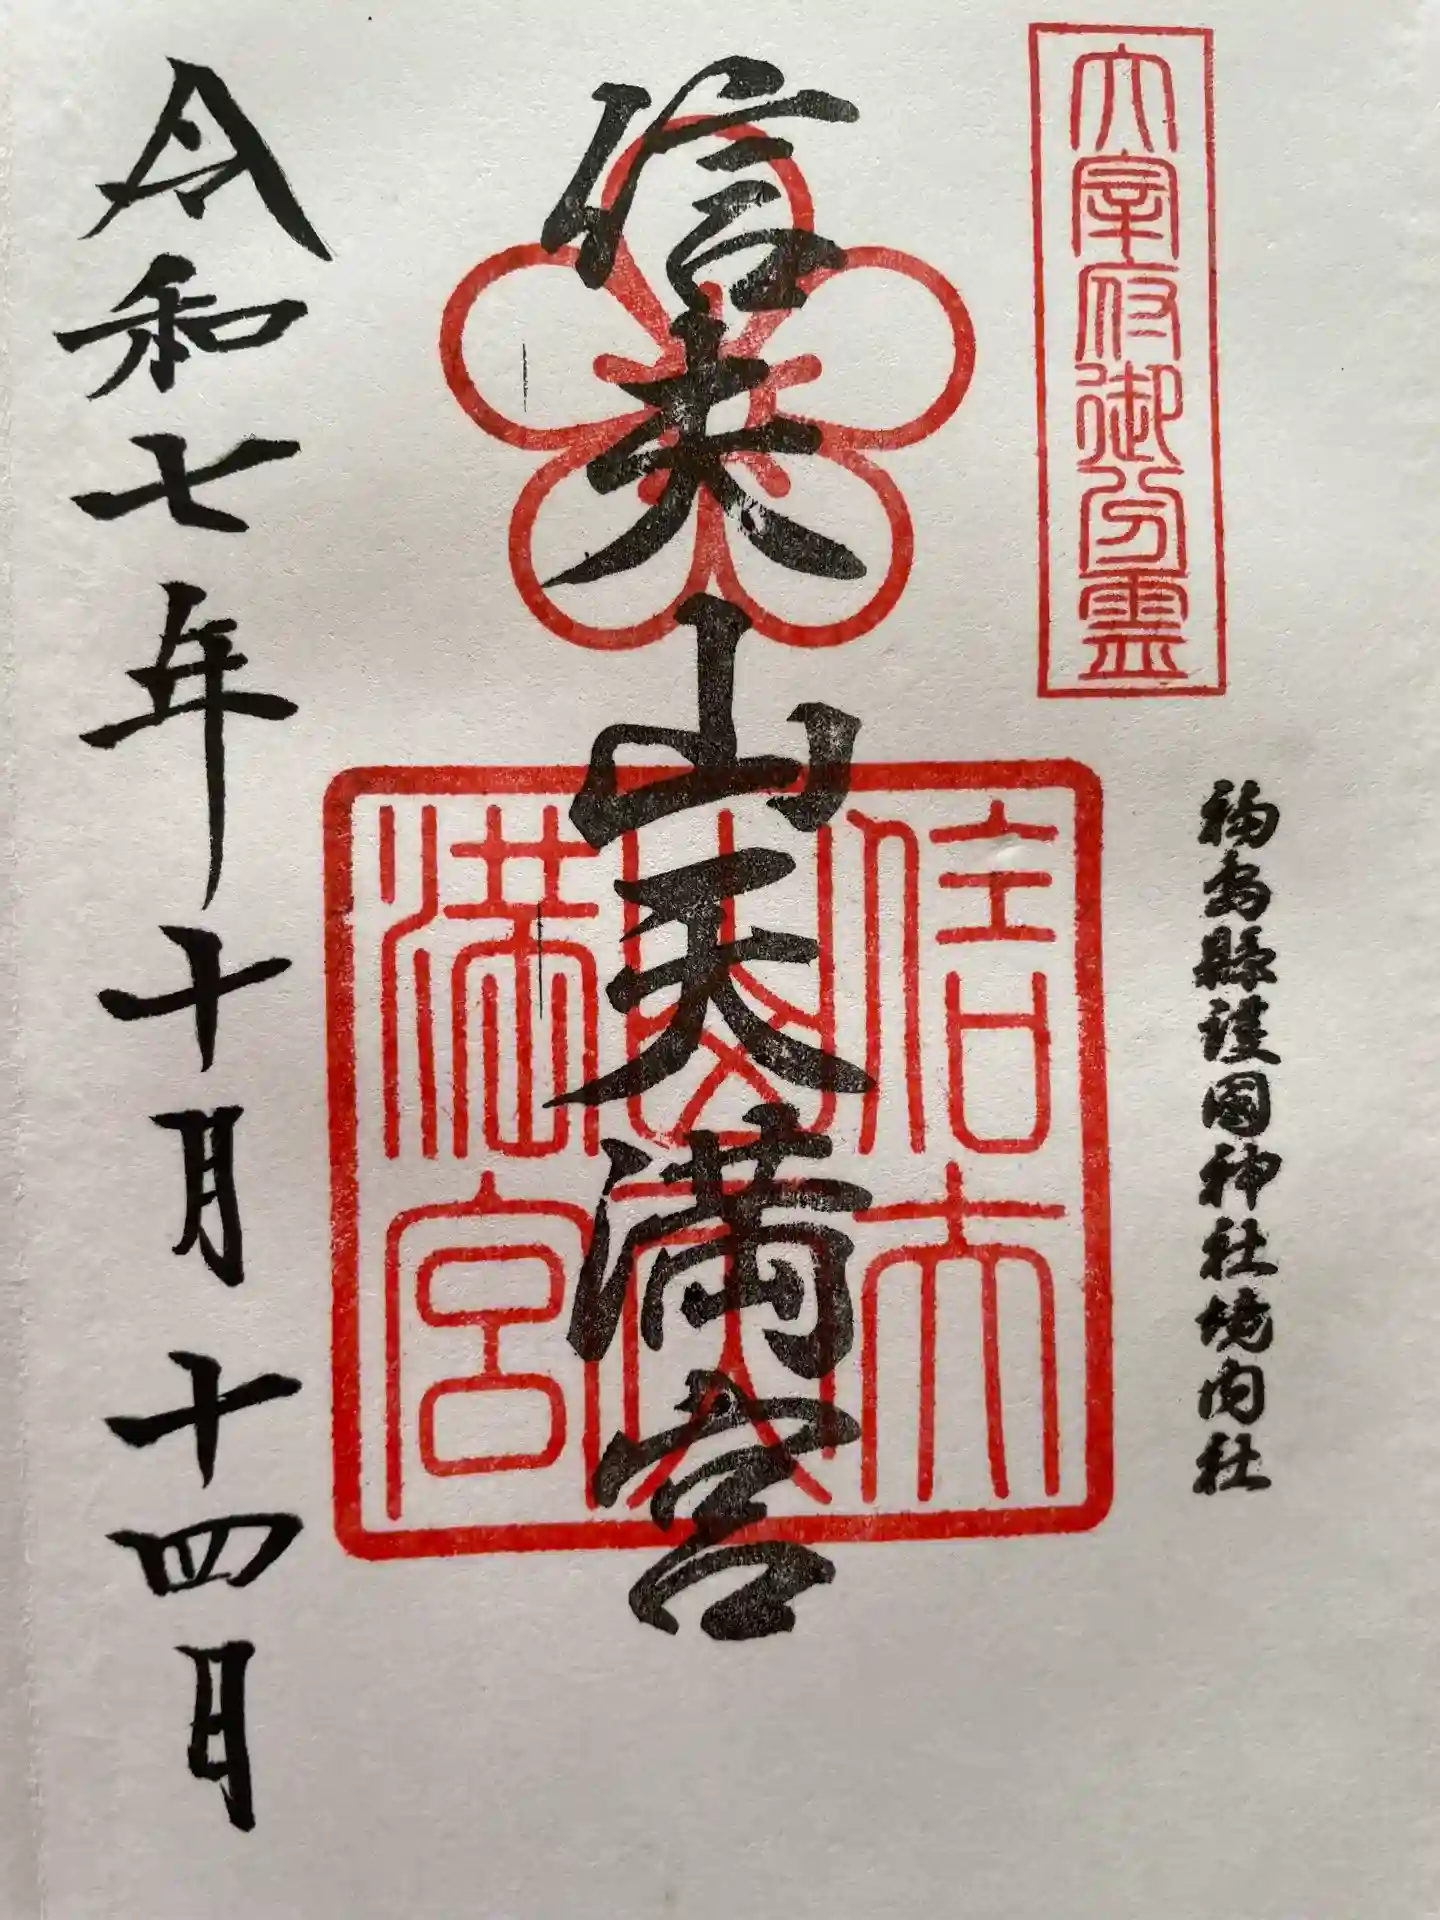 大宰府御分霊
福島縣護國神社境内社
信夫山天満宮
信夫山天満宮
令和七年十月十四日